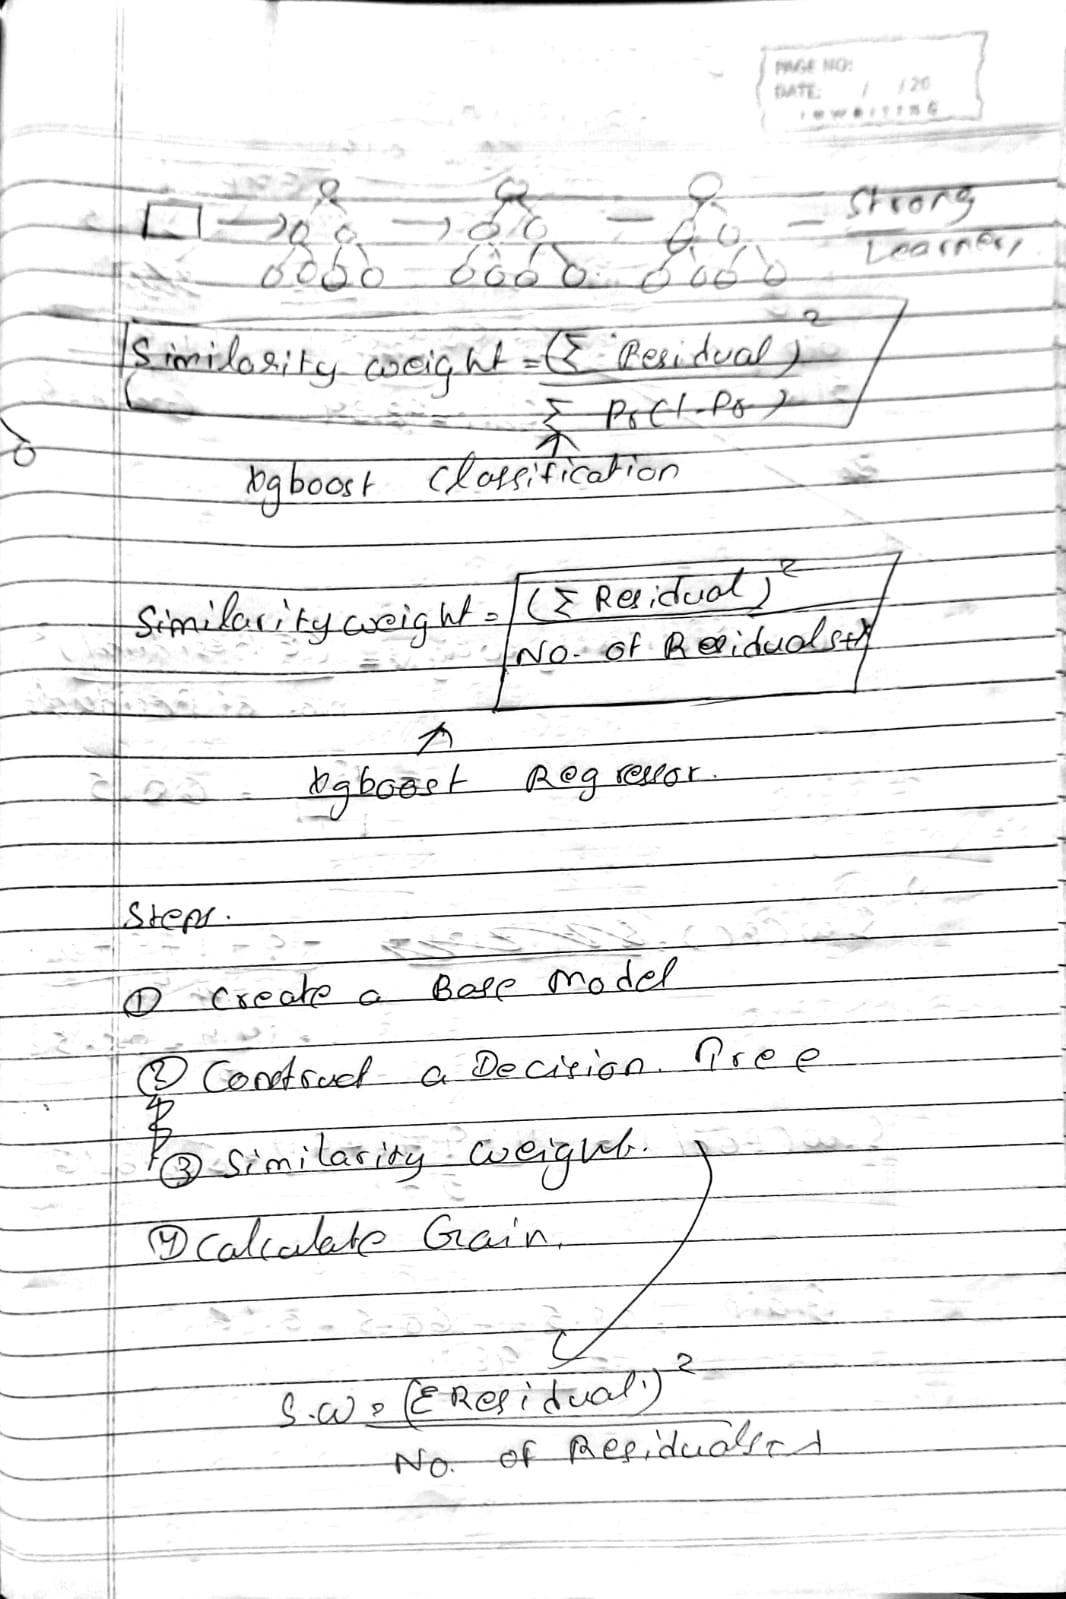 PAGE NO:
DATE: / /20
Strong
Learner,
Similarity weight = (Σ Residual)²
Σ Pr(1-Pr)
xgboost Classification
Similarity weight = (Σ Residual)²
No. of Residuals + λ
xgboost Regressor.
Steps.
① Create a Base model
② Construct a Decision Tree
③ Similarity weight.
④ Calculate Gain.
S.W = (Σ Residual)²
No. of Residuals + λ